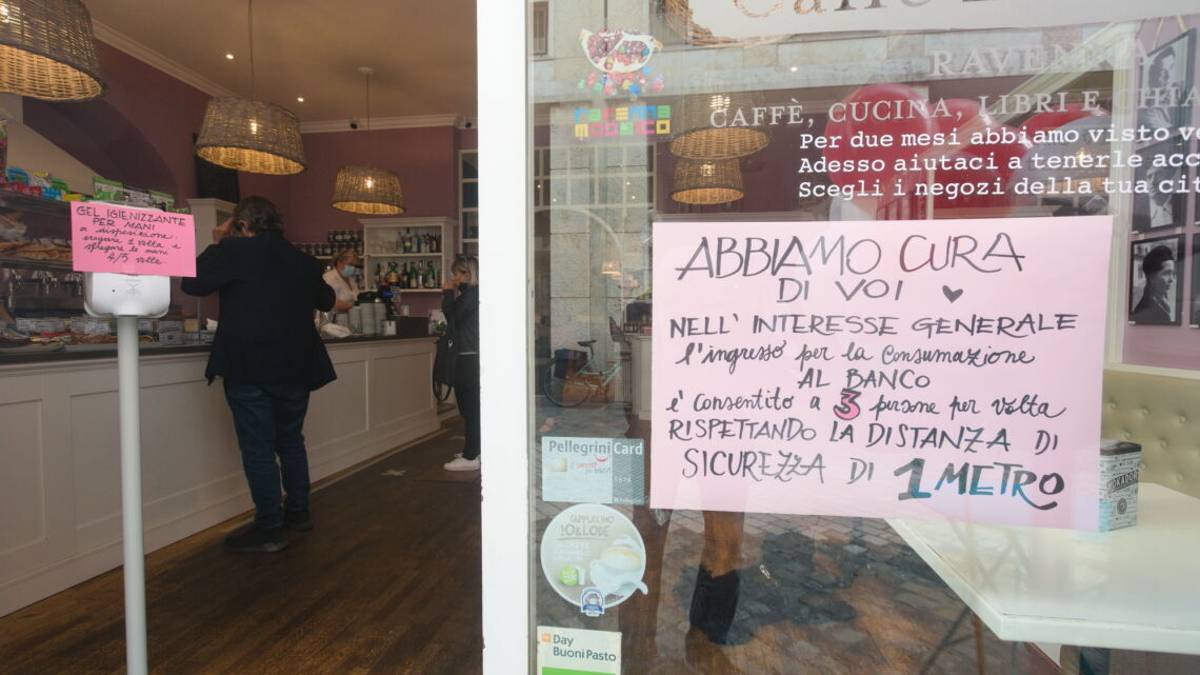 GEL IGIENIZZANTE
PER MANI
a disposizione.
erogare 1 volta e
sfregare le mani
4/5 volte
RAVENNA
MOSAICO
Caffè
RAVENNA
CAFFÈ, CUCINA, LIBRI E CHIA
Per due mesi abbiamo visto v
Adesso aiutaci a tenerle acc
Scegli i negozi della tua cit
ABBIAMO CURA
DI VOI ♥
NELL' INTERESSE GENERALE
l'ingresso per la consumazione
AL BANCO
è consentito a 3 persone per volta
RISPETTANDO LA DISTANZA DI
SICUREZZA DI 1 METRO
Pellegrini Card
CAPPUCCINO
10&LODE
Day
Buoni Pasto